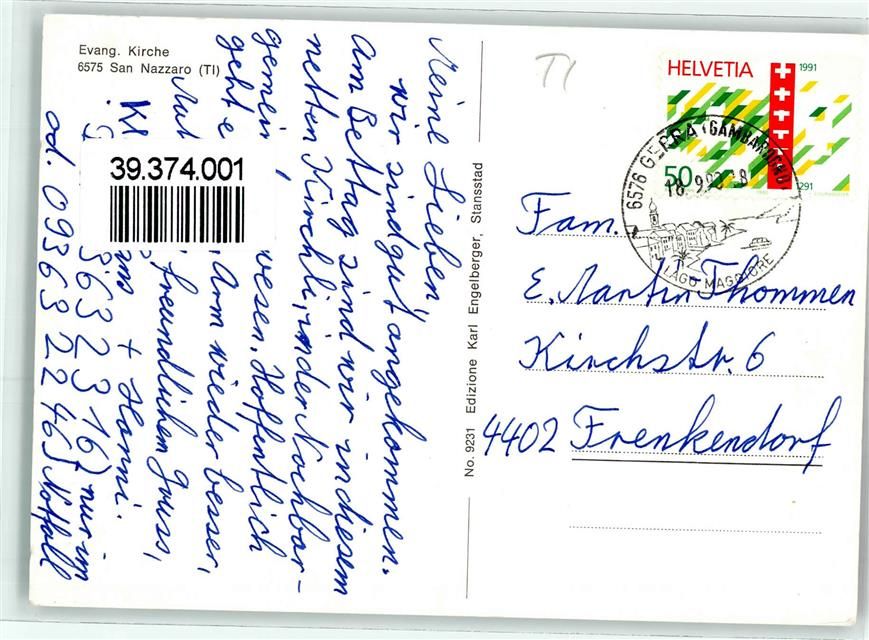 Evang. Kirche
6575 San Nazzaro (TI)
Meine Lieben,
wir sind gut angekommen.
Am Bettag sind wir in diesem
netten Kirchli, in der Nachbar-
gemein wesen. Hoffentlich
geht e Arm wieder besser,
Mit freundlichem Gruss,
+ Hanni.
3632316) nur im
od. 093632246} Notfall
39.374.001
No. 9231 Edizione Karl Engelberger, Stansstad
TI
HELVETIA
1991
50
1291
6576 GERRA (GAMBAROGNO)
18.9.92-18
LAGO MAGGIORE
Fam.
E. Martin Thommen
Kirchstr. 6
4402 Frenkendorf